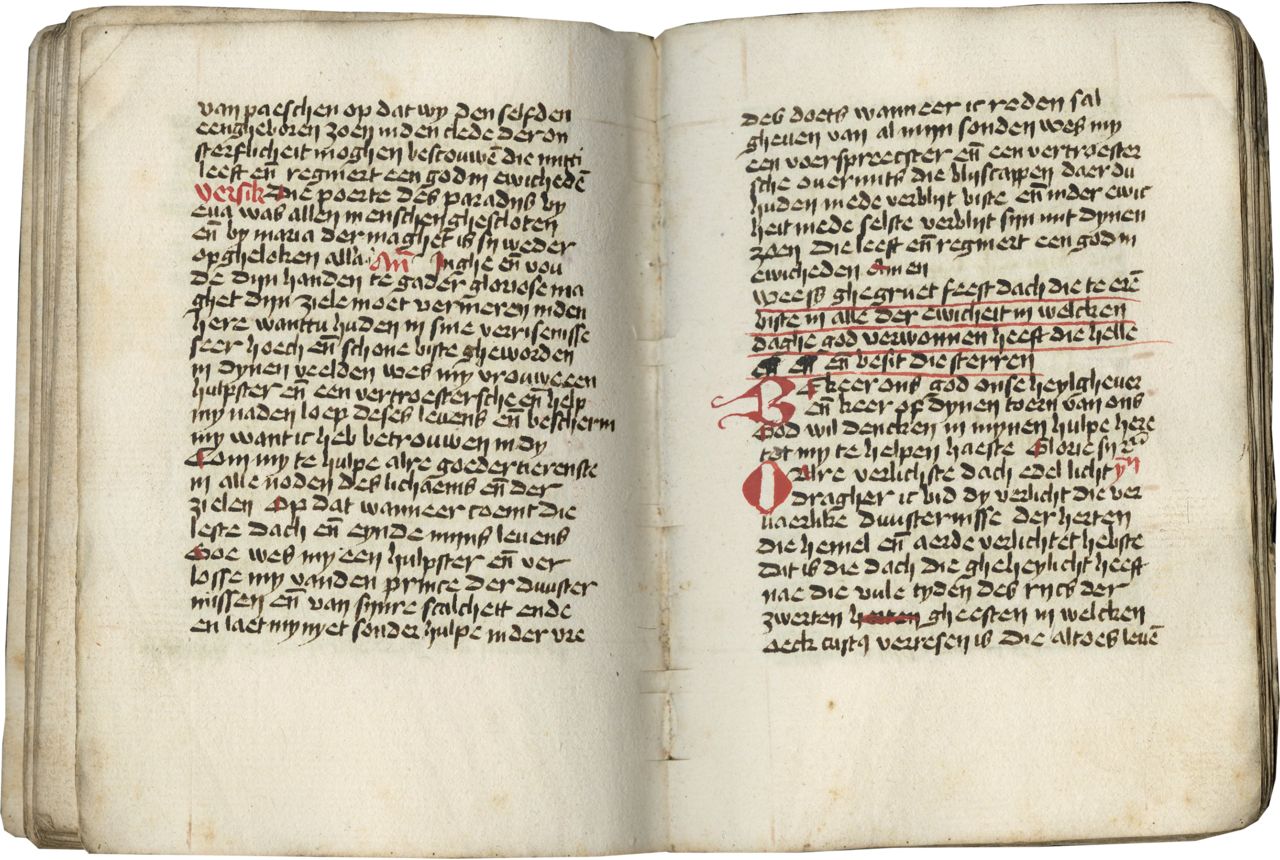 van paeschen op dat wy den selfden
eengheboren zoen in den clede der on
sterflicheit moghen bescouwē die mitti
leeft eñ regniert een god in ewichedē
versik Die poerte des paradijs by
eua was allen menschen ghescloten
eñ by maria der maghet is sy weder
opgheloken alla. Añ Inghe eñ vou
de dijn handen te gader gloriose ma
ghet dijn ziele moet verm̄eren in den
here wanttu huden in sine verrisenisse
seer hoech eñ schone biste gheworden
in dynen velden wes my vrouwe een
hulpster eñ een vertroestersche eñ help
my naden loep deses leuens eñ bescherm
my want ic heb betrouwen in dy
Com my te hulpe alre goedertierenste
in alle noden des lichaems eñ der
zielen Op dat wanneer coemt die
leste dach eñ eynde mijns leuens
Soe wes my een hulpster eñ ver
losse my vanden prince der duuster
nissen eñ van synre scalcheit ende
en laet my nyet sonder hulpe in der vre
des doets wanneer ic reden sal
gheuen van al mijn sonden wes my
een voerspreecster eñ een vertroester
sche ouermits die blijscappen daer du
huden mede verblijt biste eñ in der ewic
heit mede selste verblijt sijn mit dynen
zoen Die leeft eñ regniert een god in
ewicheden Amen
Weess ghegruet feest dach die te erē
biste in alle der ewicheit in welcken
daghe god verwonnen heeft die helle
eñ besit die sterren
BEkeer ons god onse heylgheuer
eñ keer of dynen toern van ons
God wil dencken in mynen hulpe here
tot my te helpen haeste Glorie sy
O Alre verlichste dach edel licht yñ
dragher ic bid dy verlicht die ver
uaerlike duusternisse der herten
die hemel eñ aerde verlichtet hebste
dat is die dach die gheheylicht heeft
nae die vule tyden des rijcs der
zwerten herten gheesten in welcken
oeck crist9 verresen is die altoes leuē